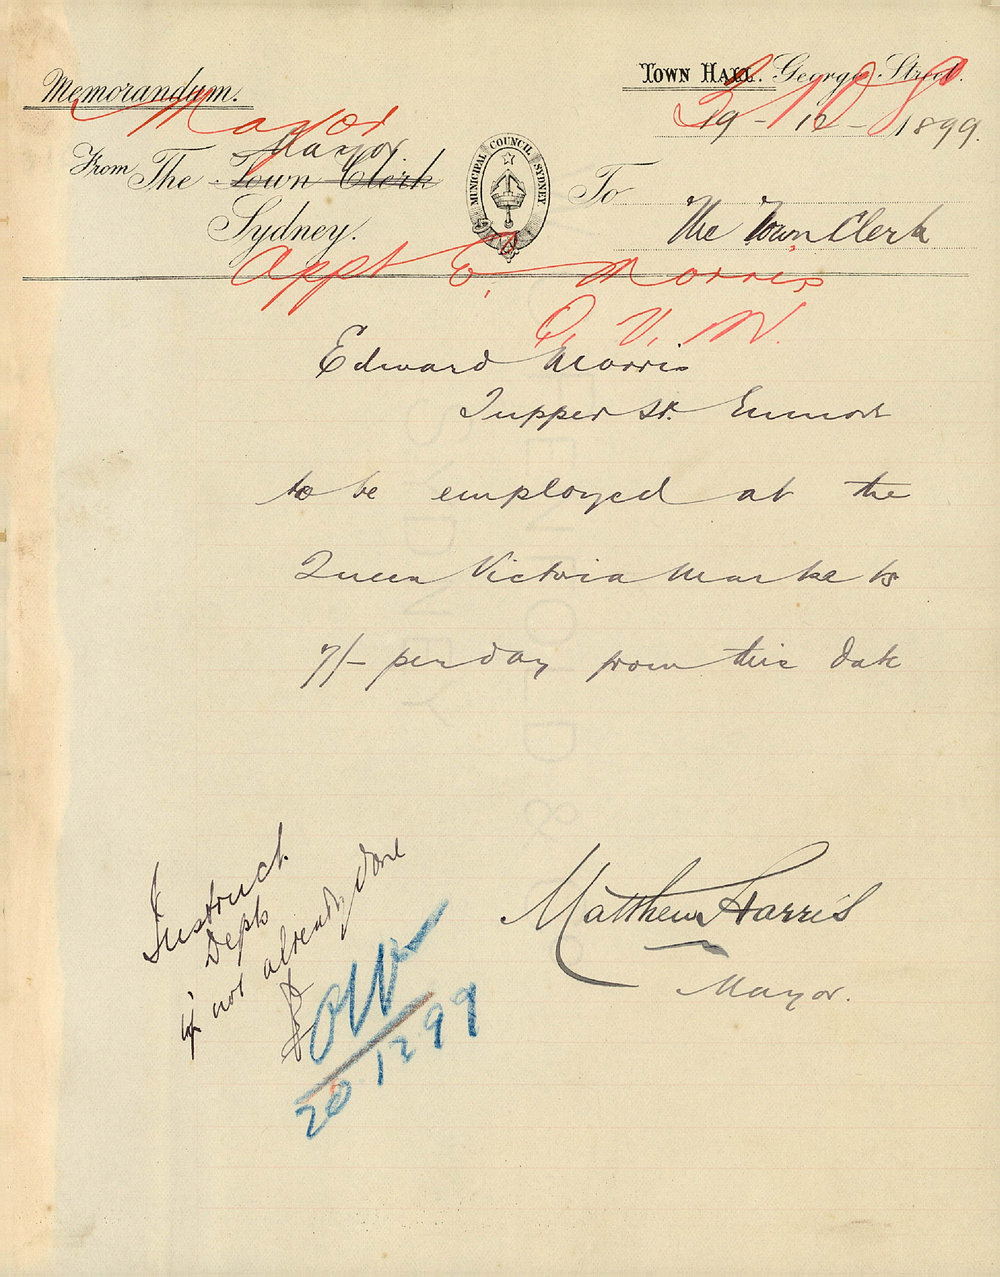 Memorandum.
Town Hall. George Street.
Mayor
19 - 12 - 1899.
Mayor.
From The Town Clerk
To
Sydney.
MUNICIPAL COUNCIL SYDNEY
The Town Clerk
Appt E. Morris
Q. V. M.
Edward Morris
Tupper St. Enmore
to be employed at the
Queen Victoria Markets
7/- per day from this date
Matthew Harris
Mayor.
Instruct
Depts
if not already done
20 12 99